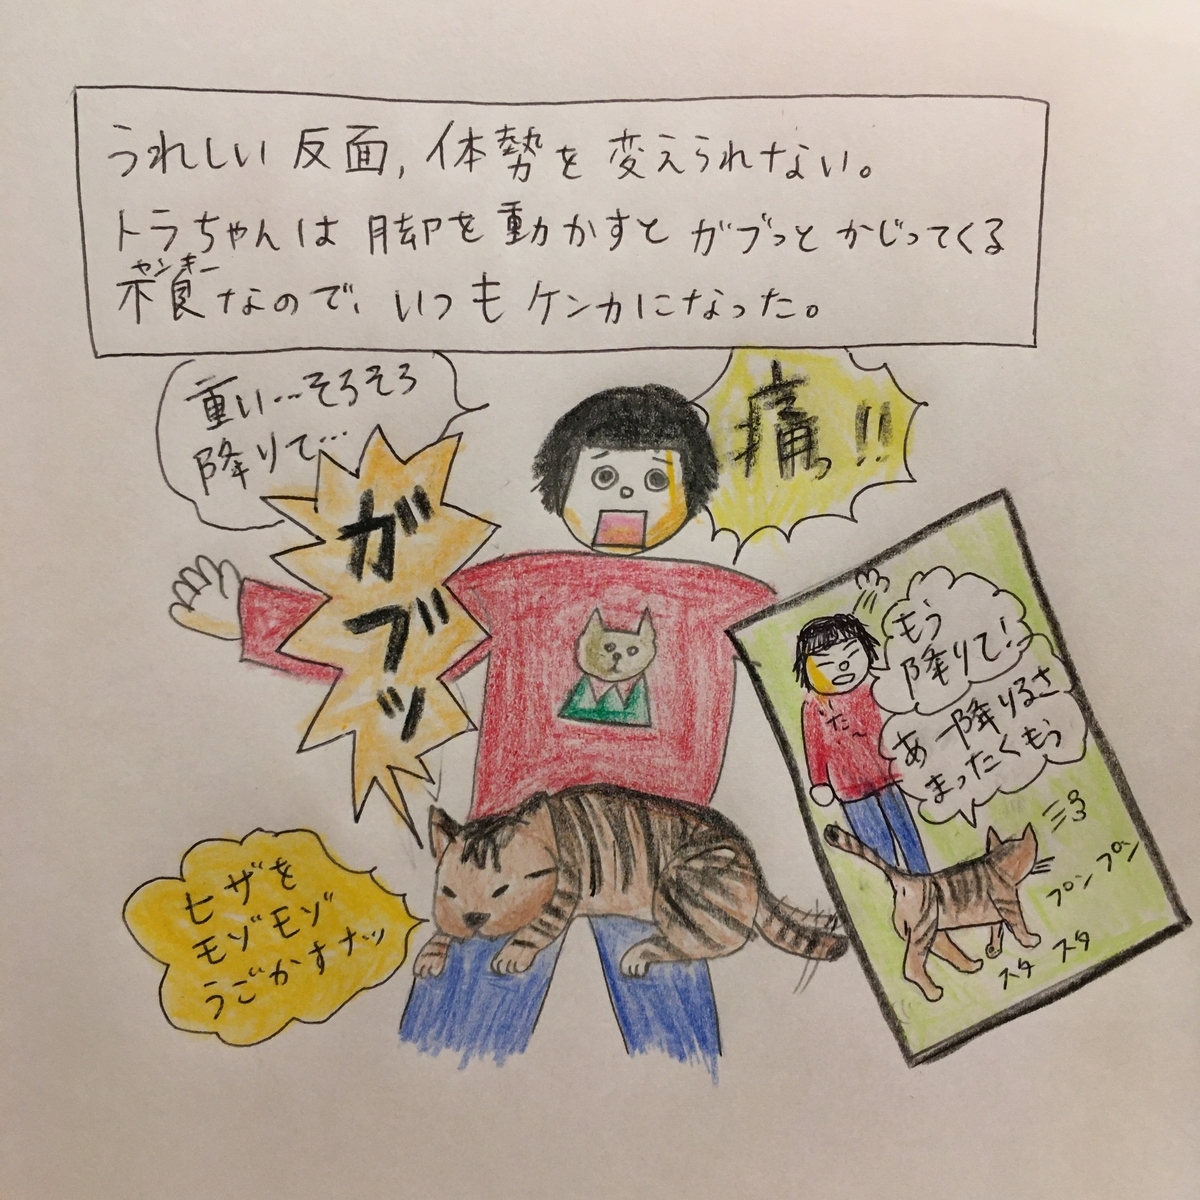 うれしい反面,体勢を変えられない。
トラちゃんは脚を動かすとガブっとかじってくる
ヤンキー
不良なので、いつもケンカになった。
重い…そろそろ
降りて…
痛っ!!
ガブッ
もう
降りて!
いた〜
あー降りるさ
まったくもう
プン プン
スタ スタ
ヒザを
モゾモゾ
うごかすナッ